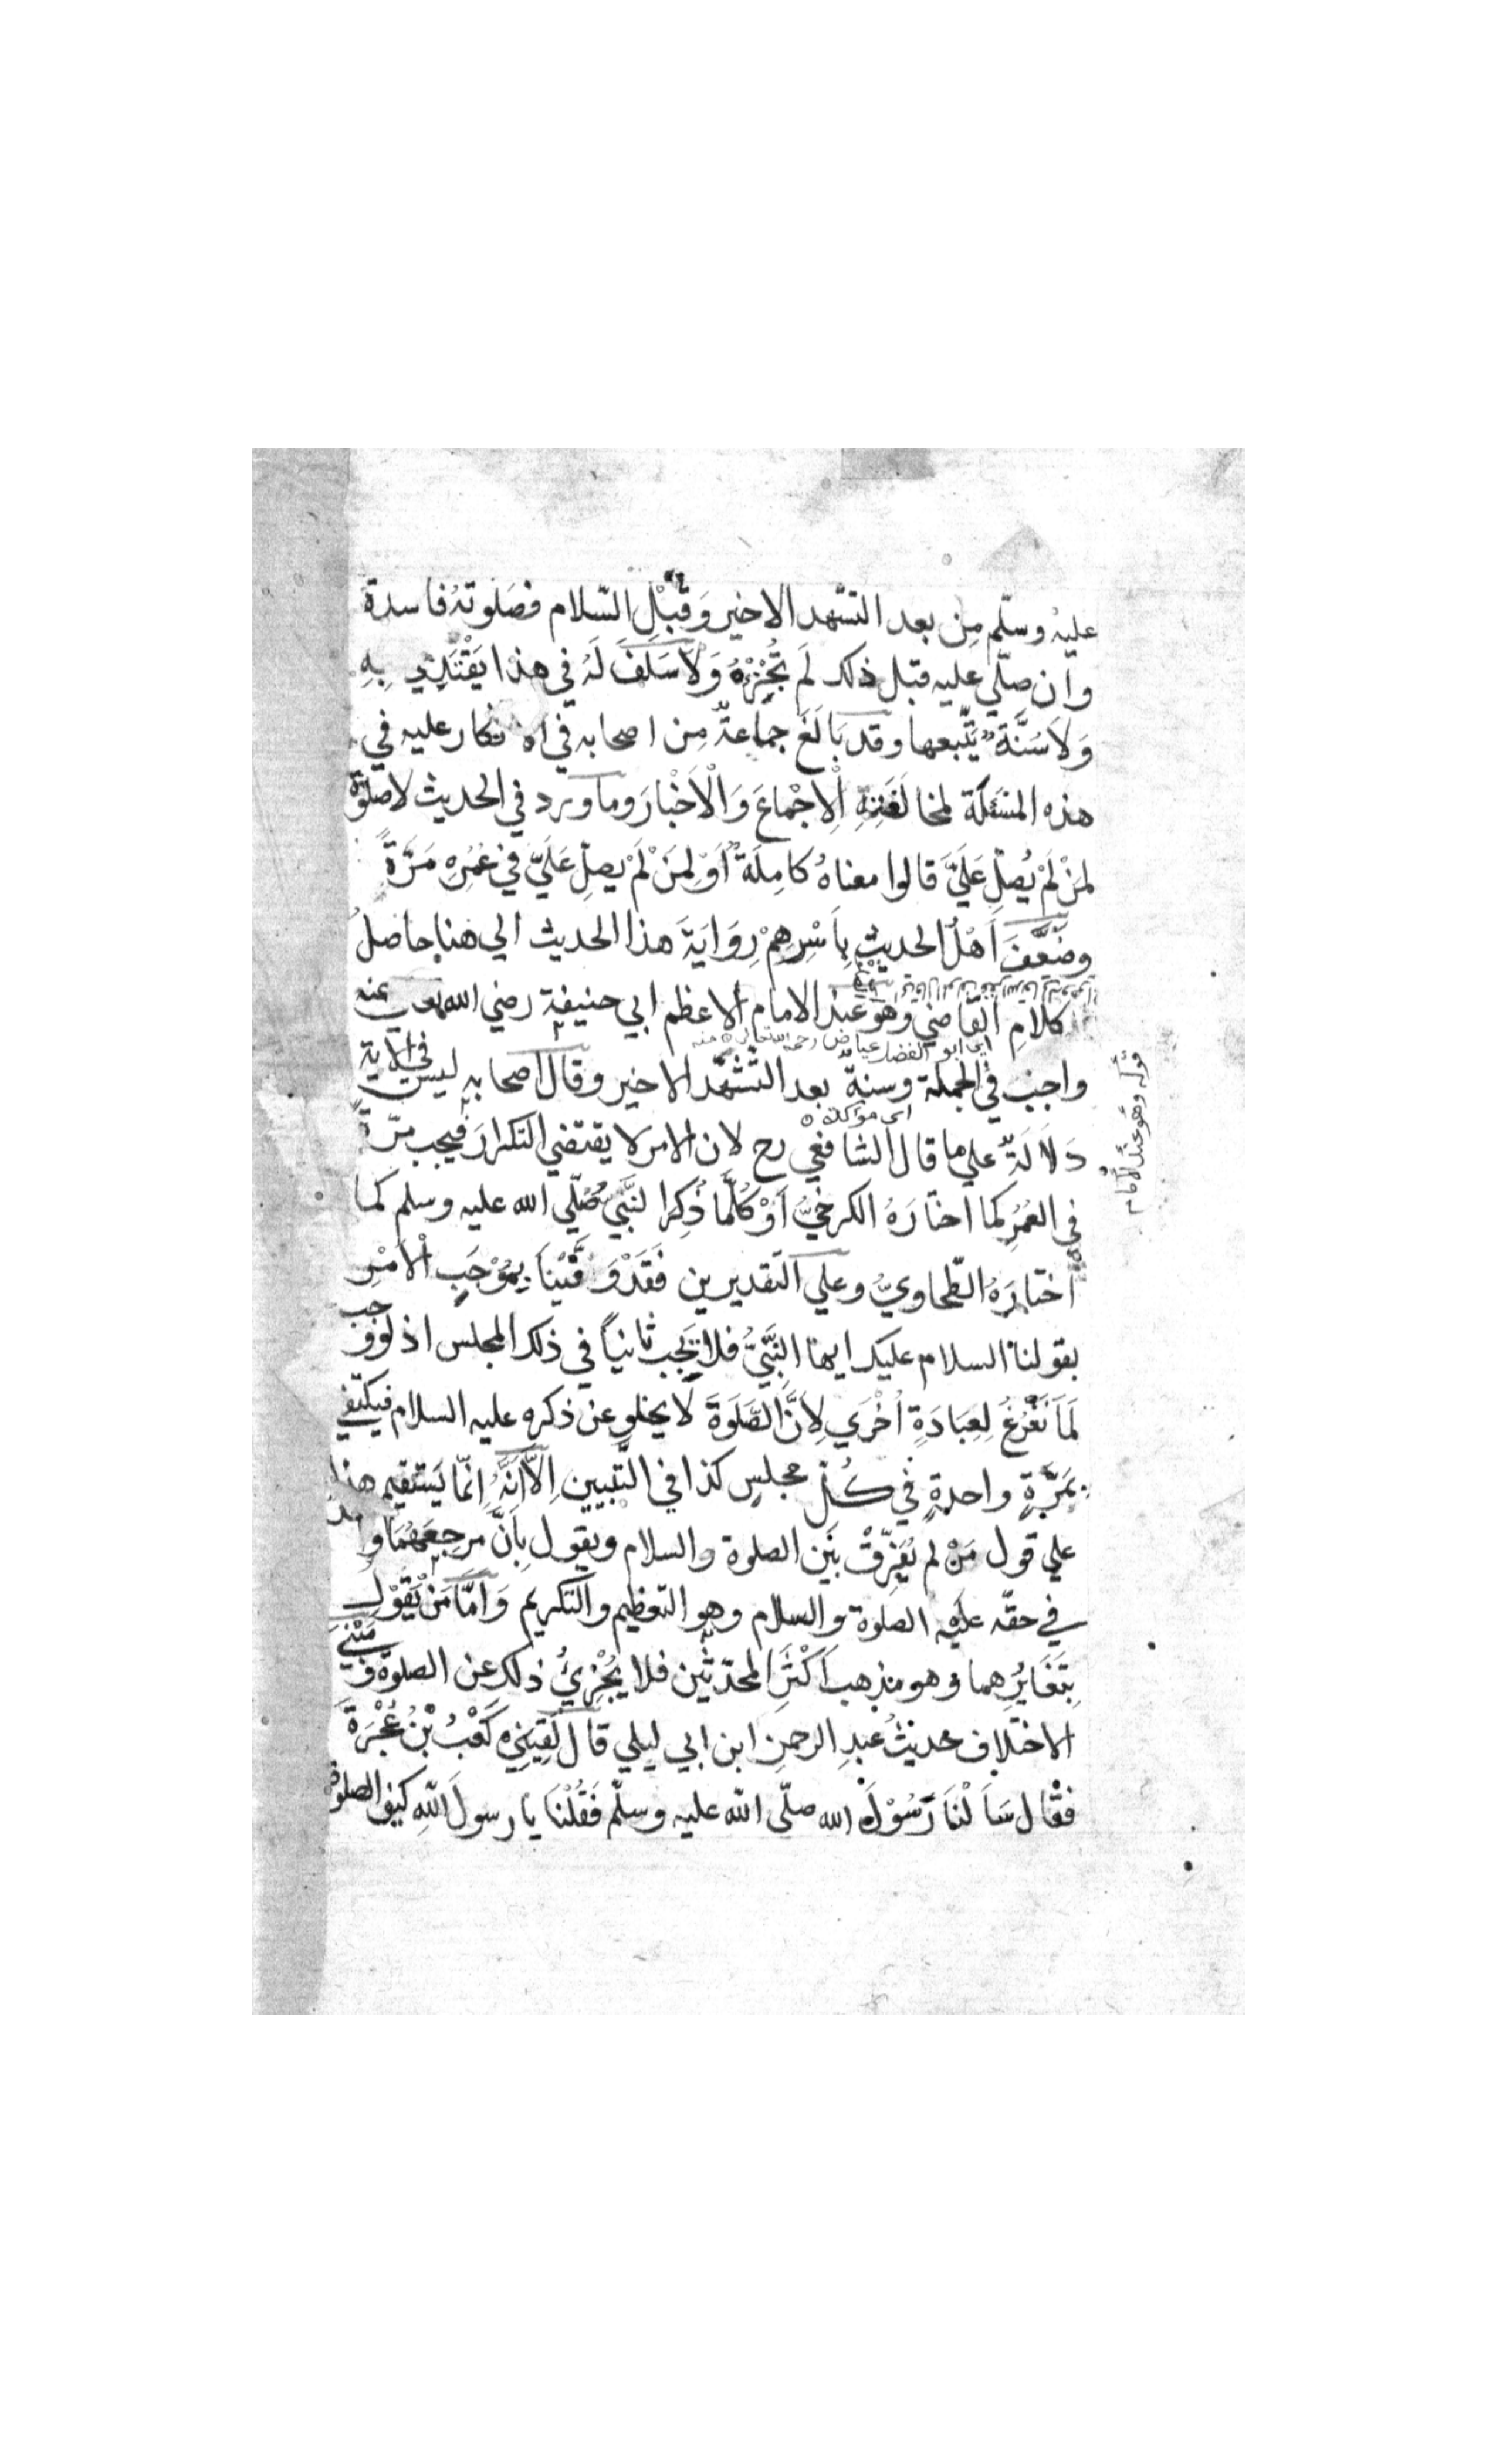 عليه وسلّم مِن بعد التشهد الاخير وَقَبْلِ السّلام فصَلوتهُ فاسدة
وان صلّي عليه قبل ذلك لَم تُجْزِئْهُ وَلاَ سَلَفَ لَهُ في هذا يَقْتَدِي بِهِ
وَلاَ سُنَّةٌ يتّبعها وقد بَالَغَ جماعةٌ مِن اصحابه في الانكار عليه في
هذه المسئلة لمخالَفَتِهِ الْاِجْمَاعَ وَالْاَخْبَارَ وما ورد في الحديث لا صلوة
لمنْ لَمْ يُصَلِّ عَلَيَّ قالوا معناهُ كامِلَةٌ اَوْ لِمَنْ لَمْ يصلِّ عَلَيّ في عُمُرِهِ مَرَّةً
وضَعَّفَ اَهْلُ الحديثِ بِاَسْرِهِمْ رِوَايَةَ هذا الحديث الي هنا حاصلُ
كلامِ القاضي وهو عند الامام الاعظم ابي حنيفة رضي الله تعالي عنه
اي ابو الفضل عياض رحمه الله تعالي منه
واجب في الجملة وسنةٌ بعد التّشهّد الاخير وقال اصحابه ليس في الاية
اي مؤكدة
دَلاَلَةٌ علي ما قال الشافعي رح لان الامر لا يقتضي التكرارَ فيجب مرّةً
في العُمُرِ كما اختارَهُ الكرخيُّ اَوْ كُلَّمَا ذُكِرَ النَّبيُّ صَلّي الله عليه وسلم كما
اختارَهُ الطّحاويُّ وعلي التقديرين فَقَدْ وَفَّيْنَا بِمُوْجَبِ الْاَمْرِ
بقولنا السلام عليك ايها النَّبيُّ فلا يَجِب ثانياً في ذلك المجلس اذ لو وجب
لَمَا نَفْرُغُ لِعِبَادَةٍ اُخْرَي لِاَنَّ الصَّلَوةَ لا يخلو عن ذكره عليه السلام فيكتفي
بمَرَّةٍ واحدةٍ في كُلّ مجلسٍ كذا في التّبيين اِلاَّ اَنَّهُ اِنّما يَسْتقيم هذا
علي قول مَنْ لم يُفَرِّقْ بَيْن الصلوة والسلام ويقول بِاَنَّ مرجعهُمَا واحد
في حقّه عليه الصلوة والسلام وهو التعظيم والتكريم وَامَّا مَنْ يَقُوْل
بِتَغَايُرِهما وهو مذهب اَكْثَرِ المحدّثين فلا يُجْزِيُ ذلك عن الصلوة وَمَبْنَي
الاختلاف حديثُ عبدِ الرحمنِ ابن ابي ليلي قال لَقِيَنِي كَعْبُ بْنُ عُجْرَةَ
فقال سَاَلْنَا رَسُوْلَ الله صلّى الله عليه وسلّم فَقُلْنَا يا رسولَ اللهِ كيف الصلوة
قوله وهو عند الامام